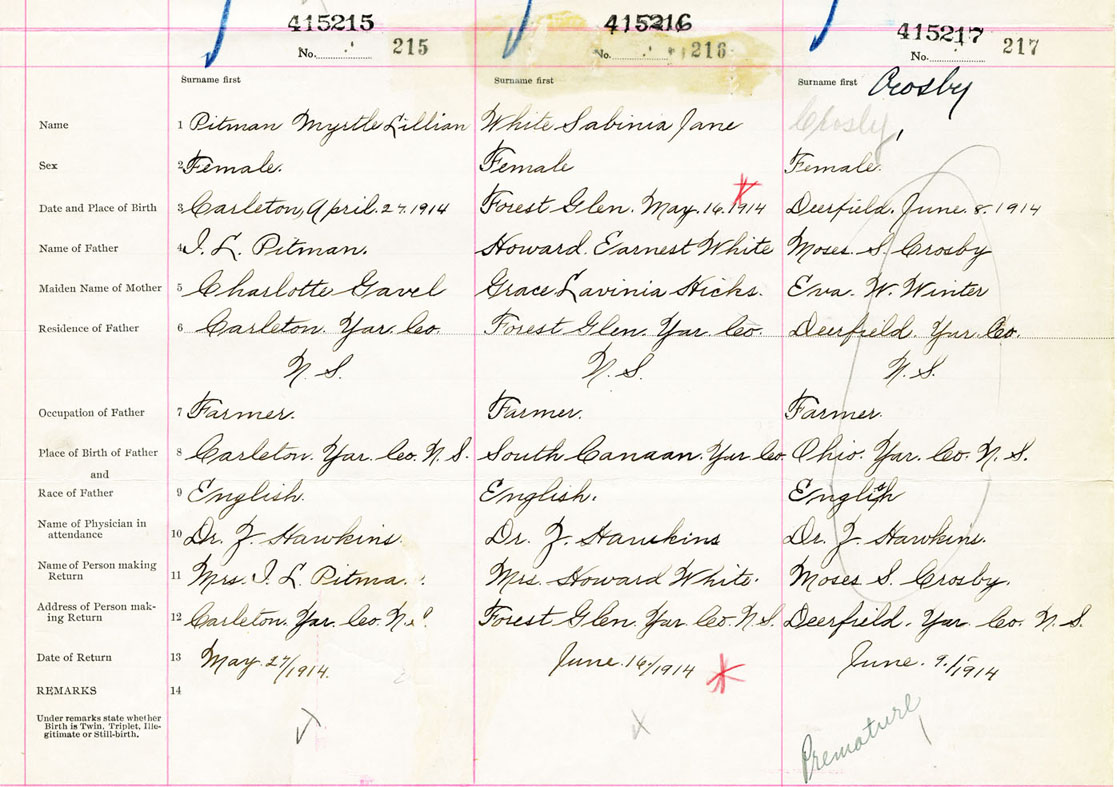 415215 415216 415217
No. 215 No. 216 No. 217
Surname first Surname first Surname first Crosby
Name 1 Pitman Myrtle Lillian White Sabinia Jane Crosby
Sex 2 Female. Female Female.
Date and Place of Birth 3 Carleton, April. 27. 1914 Forest Glen. May. 16. 1914 Deerfield. June. 8. 1914
Name of Father 4 I. L. Pitman. Howard. Earnest White Moses. S. Crosby
Maiden Name of Mother 5 Charlotte Gavel Grace Lavinia Hicks. Eva. W. Winter
Residence of Father 6 Carleton. Yar. Co. Forest Glen. Yar. Co. Deerfield. Yar. Co.
N. S. N. S. N. S.
Occupation of Father 7 Farmer. Farmer. Farmer.
Place of Birth of Father 8 Carleton. Yar. Co. N. S. South Canaan. Yar Co. Ohio. Yar. Co. N. S.
and
Race of Father 9 English. English. English
Name of Physician in
attendance 10 Dr. Z. Hawkins. Dr. Z. Hawkins Dr. Z. Hawkins.
Name of Person making
Return 11 Mrs. I. L. Pitma. Mrs. Howard White. Moses S. Crosby.
Address of Person mak-
ing Return 12 Carleton. Yar. Co. N. S. Forest Glen. Yar. Co. N. S. Deerfield. Yar. Co. N. S.
Date of Return 13 May. 27/1914. June. 16/1914 June. 9./1914
REMARKS 14
Under remarks state whether
Birth is Twin, Triplet, Ille-
gitimate or Still-birth.
Premature